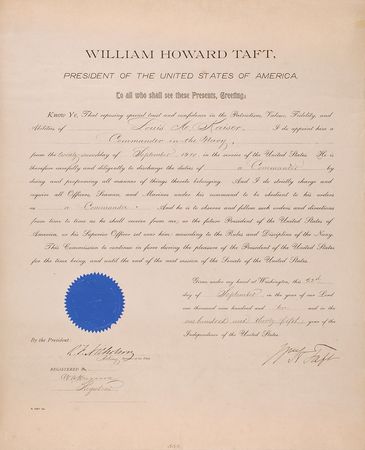 WILLIAM HOWARD TAFT,
PRESIDENT OF THE UNITED STATES OF AMERICA.
To all who shall see these Presents, Greeting:
Know Ye, That reposing special trust and confidence in the Patriotism, Valour, Fidelity, and
Abilities of Louis A. Kaiser I do appoint him a
Commander in the Navy
from the day of September 1910 in the service of the United States. He is
therefore carefully and diligently to discharge the duties of a Commander by
doing and performing all manner of things thereto belonging. And I do strictly charge and
require all Officers, Seamen, and Marines under his command to be obedient to his orders
as a Commander And he is to observe and follow such orders and directions
from time to time as he shall receive from me, or the future President of the United States of
America, or his Superior Officer set over him, according to the Rules and Discipline of the Navy.
This Commission to continue in force during the pleasure of the President of the United States
for the time being, and until the end of the next session of the Senate of the United States.
Given under my hand at Washington, this
day of September in the year of our Lord
one thousand nine hundred and ten and in the
one hundred and thirty fifth year of the
Independence of the United States.
By the President
Wm H Taft
REGISTERED